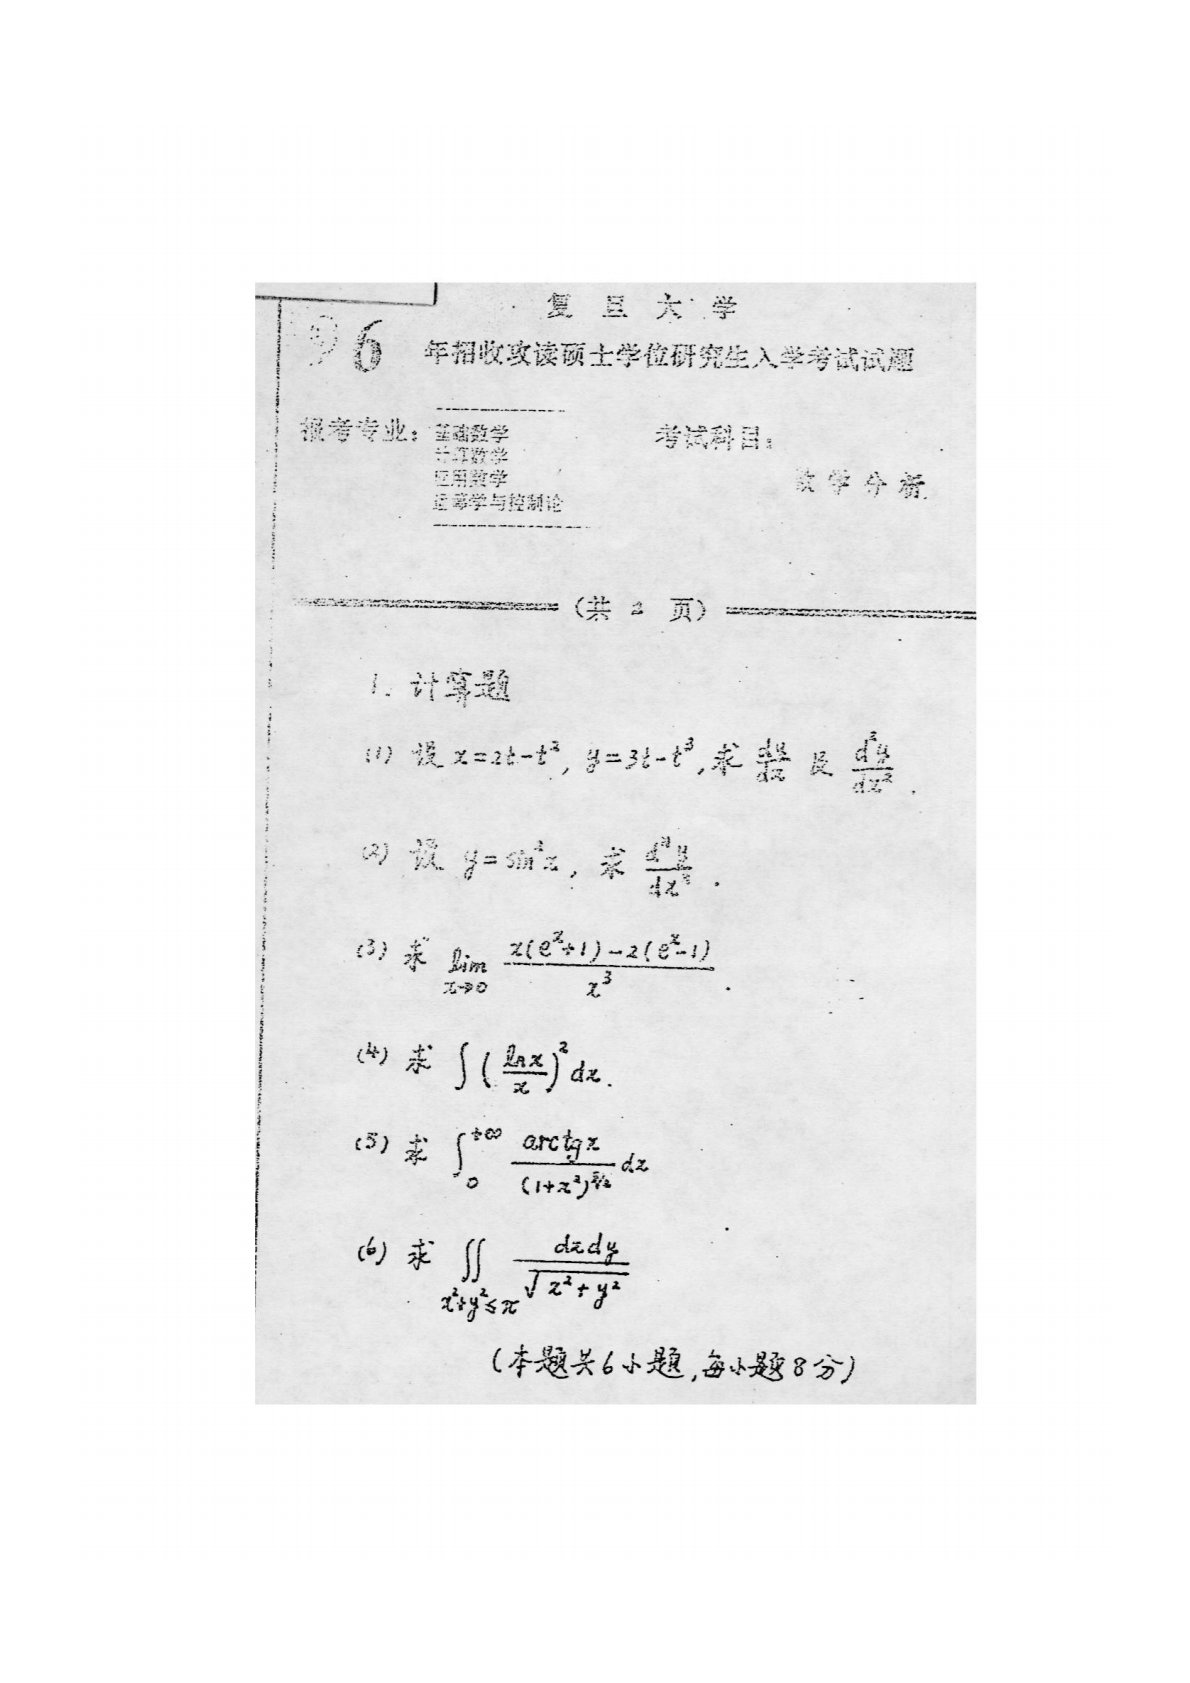 复旦大学
96 年招收攻读硕士学位研究生入学考试试题
报考专业： 考试科目：
基础数学
计算数学
应用数学
运筹学与控制论
数学分析
（共 2 页）
1. 计算题
(1) 设 x=2t-t², y=3t-t³, 求 dy/dx 及 d²y/dx².
(2) 设 y=sin x, 求 dy/dx.
(3) 求 lim x→0 (x(eˣ+1)-2(eˣ-1))/x³.
(4) 求 ∫(ln x/x)² dx.
(5) 求 ∫₀^{+∞} arctg x/(1+x²)^{3/2} dx
(6) 求 ∬_{x²+y²≤π} dxdy/√(x²+y²)
(本题共6小题,每小题8分)